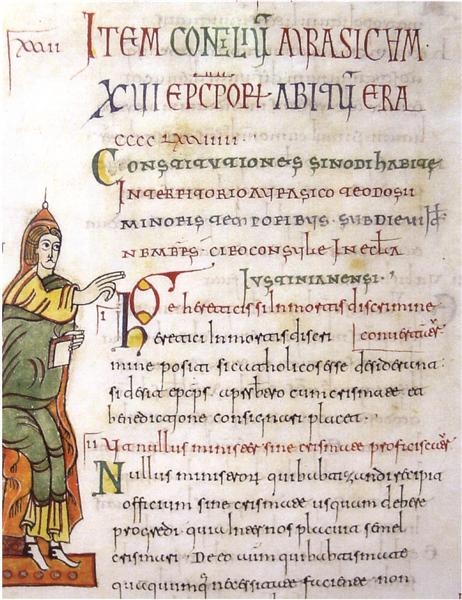 XXII
ITEM CONCILIŪ ARASICUM
XVII EPCPOR HABITŪ ERA
CCCCLXXVIIII
CONSTITUTIONES SINODI HABITE
IN TERRITORIO AURASICO TEODOSII
MINORIS TEMPORIBUS SUB DIE VI ID
NBMBRS CIRO CONSULE IN ECLA
IUSTINIANENSI
I De hereticis si in mortis discrimine
convertuntr
Heretici in mortis discri
mine positi si catholicos esse desiderant
si desit epcps a prbero cum crismate et
benedictione consignari placet
II Ut nullus minister sine crismate proficiscatr
Nullus ministror qui babtizandi recipit
officium sine crismate usquam debere
progredi quia inter nos placuit semel
crismari De eo autem qui babtismate
quacumq necessitate faciente non